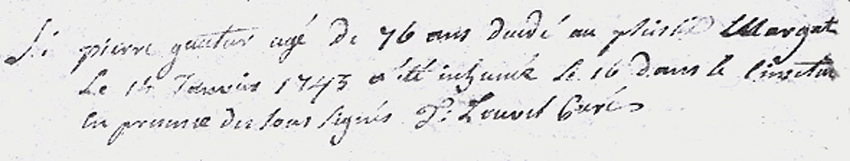 pierre gautier agé de 76 ans décédé au plessis Margat
Le 14 Janvier 1743 a été inhumé le 16 dans le cimetiere
En presence des sous signés P. Louvel Curé